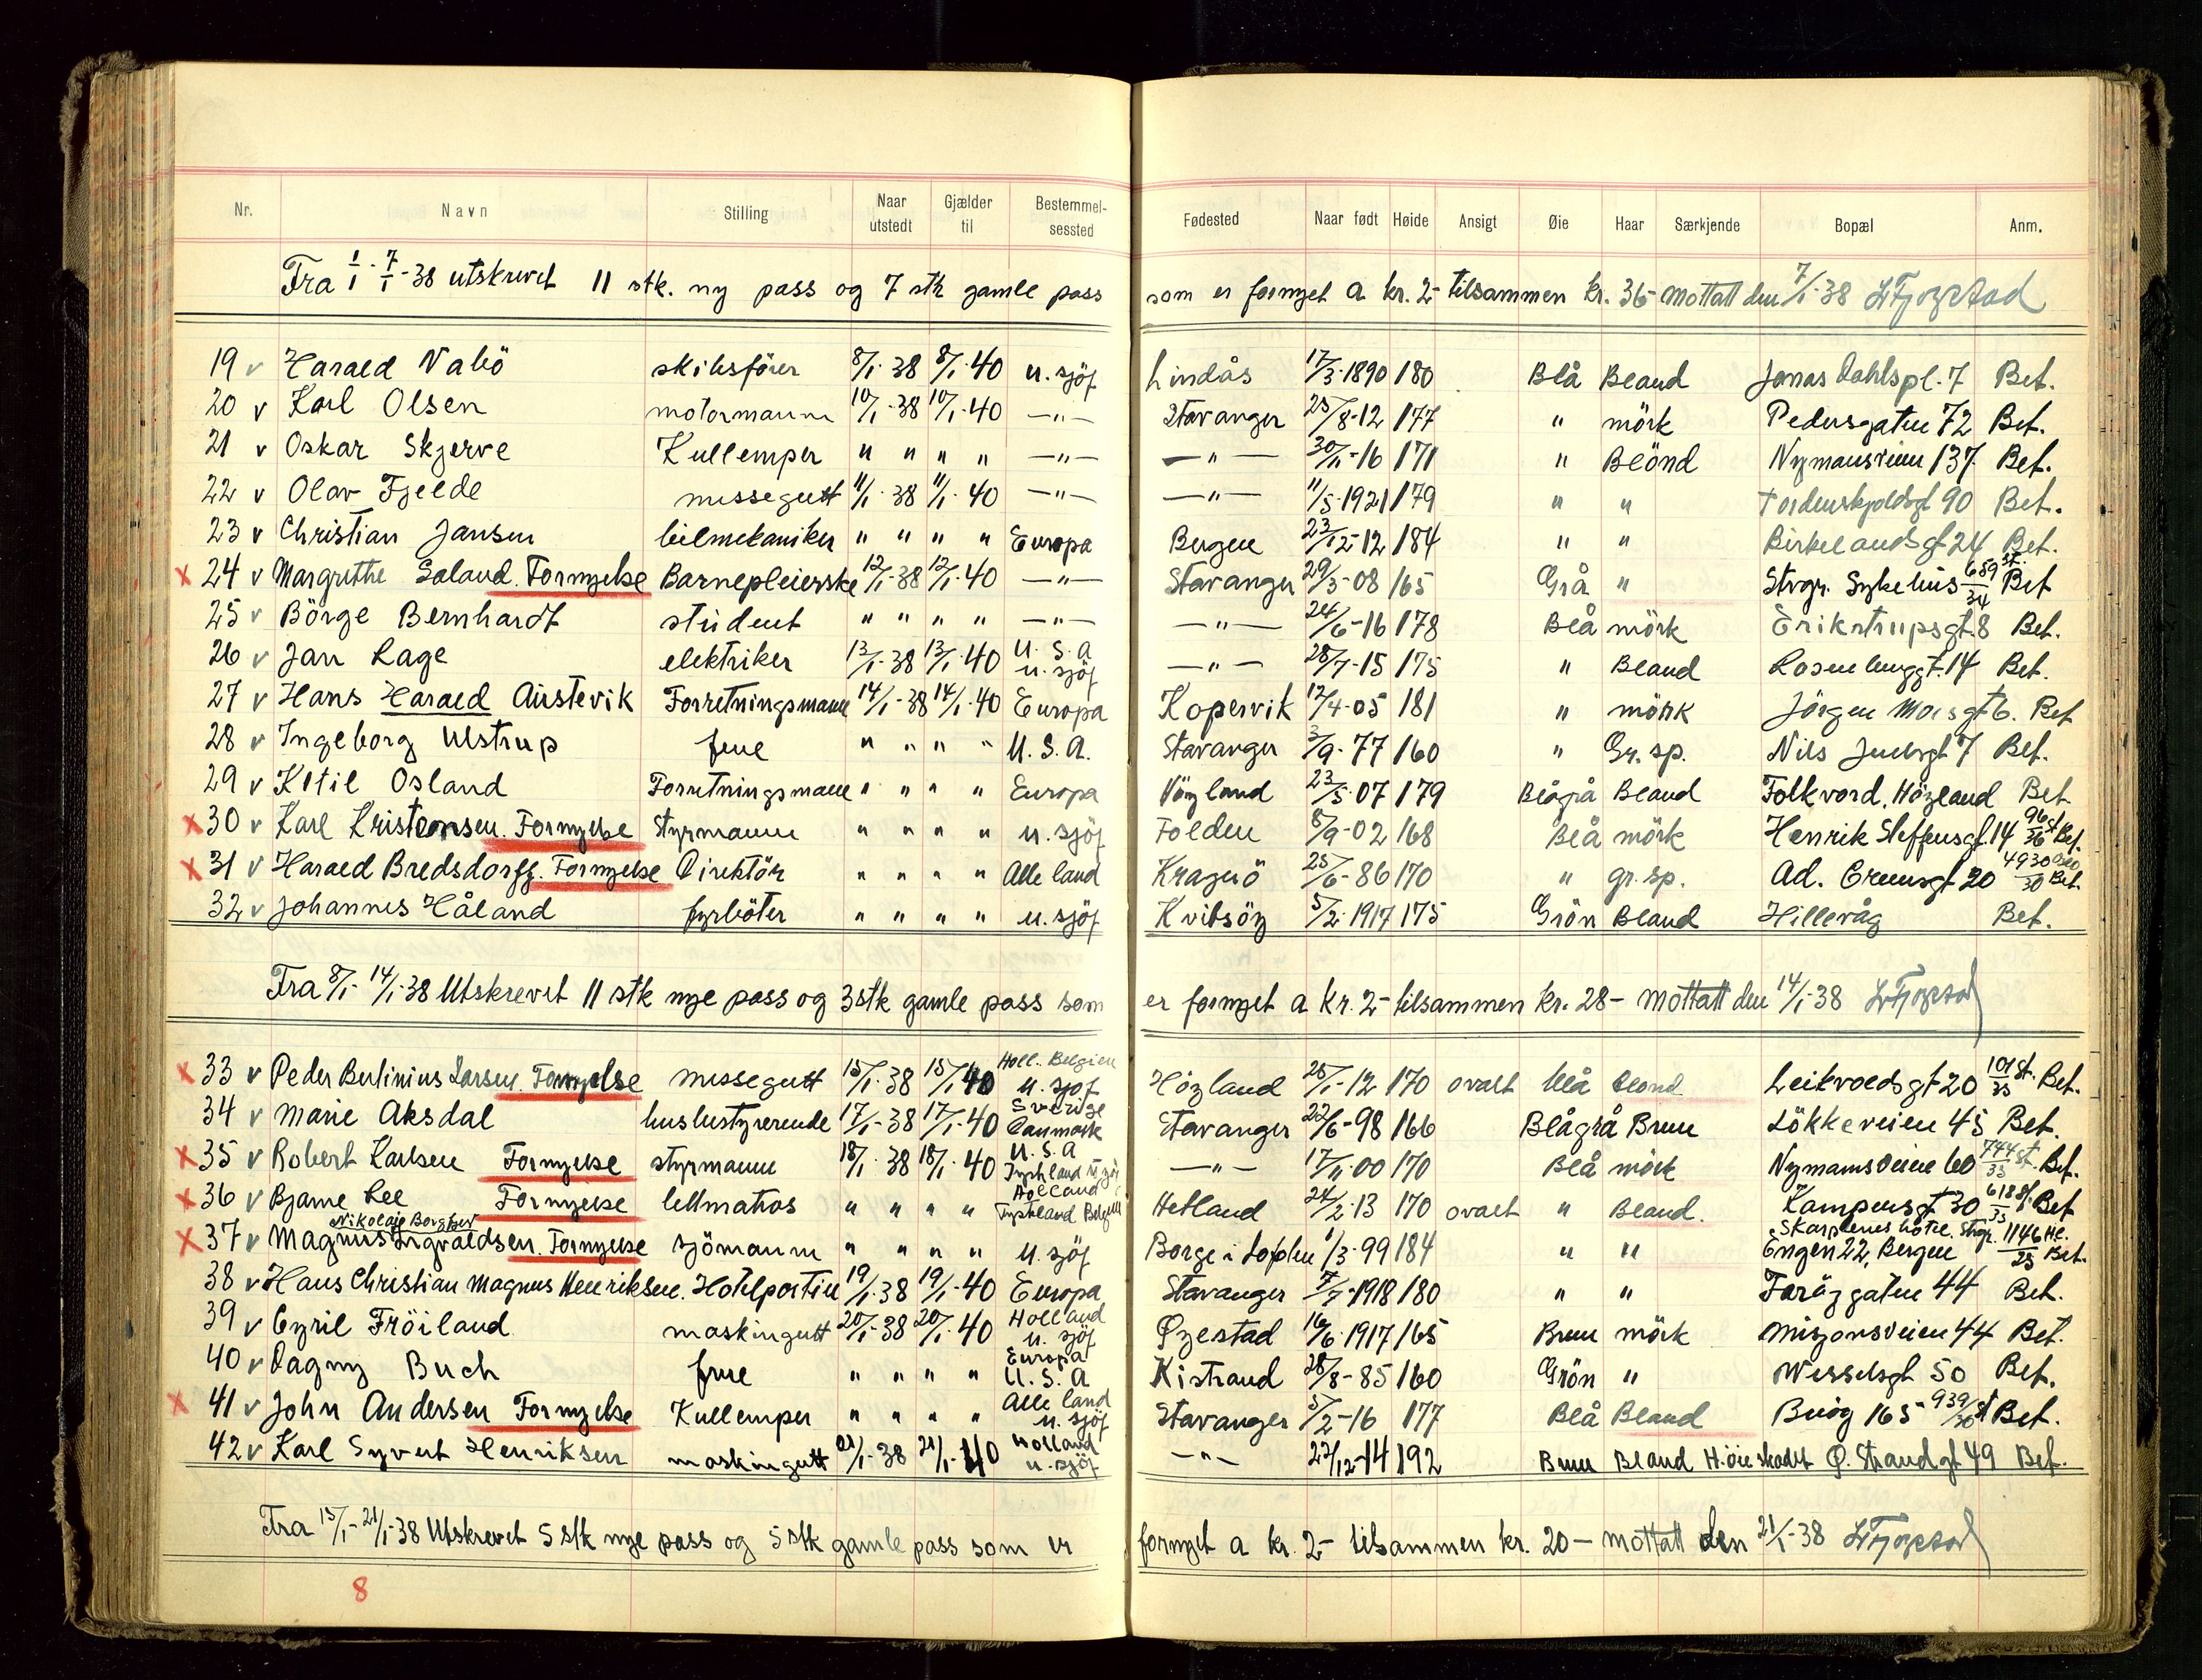 Nr. Navn Stilling Naar utstedt Gjælder til Bestemmelsessted Fødested Naar født Høide Ansigt Øie Haar Særkjende Bopæl Anm.
Fra 1/1 - 7/1 - 38 utskrevet 11 stk. ny pass og 7 stk gamle pass som er fornyet a kr. 2- tilsammen kr. 36- mottatt den 7/1-38
19 v Harald Nabö skibsförer 8/1-38 8/1-40 u. sjöf Lindås 17/3-1890 180 Blå Bland Jonas Dahlspl. 7 Bet.
20 v Karl Olsen motormann 10/1-38 10/1-40 —"— Stavanger 25/8-12 177 " mörk Pedersgaten 72 Bet.
21 v Oskar Skjerve Kullemper " " " " —"— —"— 30/11-16 171 " Blönd Nymansveien 137 Bet.
22 v Olav Fjelde messegutt 11/1-38 11/1-40 —"— —"— 11/5-1921 179 " " Tordenskjoldsgt 90 Bet.
23 v Christian Jansen bilmekaniker " " " " Europa Bergen 23/12-12 184 " " Birkelandsgt 24 Bet.
x 24 v Margrethe Soland. Fornyelse Barnepleierske 12/1-38 12/1-40 —"— Stavanger 29/3-08 165 Grå " Strgr. Sykehus 659 st. 34 Bet
25 v Börge Bernhardt student " " " " —"— —"— 24/6-16 178 Blå mörk Erikstrupsgt. 8 Bet.
26 v Jan Rage elektriker 13/1-38 13/1-40 U.S.A u. sjöf —"— 28/7-15 175 " Bland Rosenberggt. 14 Bet.
27 v Hans Harald Austevik Forretningsmann 14/1-38 14/1-40 Europa Kopervik 12/4-05 181 " mörk Jörgen Moesgt 6. Bet
28 v Ingeborg Ulstrup frue " " " " U.S.A. Stavanger 3/9-77 160 " Gr. sp. Nils Juelsgt 7 Bet.
29 v Ketil Osland Forretningsmann " " " " Europa Höyland 23/5-07 179 Blågrå Bland Folkvord, Höyland Bet.
x 30 v Karl Kristensen. Fornyelse Styrmann " " " " u. sjöf Folden 8/9-02 168 Blå mörk Henrik Steffensgt. 14 96 st 36 Bet.
x 31 v Harald Bredsdorff. Fornyelse Direktör " " " " Alle land Kragerö 25/6-86 170 " gr. sp. Ad. Breensgt 20 4930 Oslo 30 Bet.
32 v Johannes Håland fyrböter " " " " u. sjöf Kvitsöy 5/2-1917 175 Grön Bland Hillevåg Bet.
Fra 8/1- 14/1-38 Utskrevet 11 stk nye pass og 3 stk gamle pass som er fornyet a kr. 2- tilsammen kr. 28- mottatt den 14/1-38
x 33 v Peder Berlinius Larsen. Fornyelse messegutt 15/1-38 15/1-40 Holl. Belgien u. sjöf Höyland 25/1-12 170 ovalt blå blond Leikvoldsgt 20 101 st. 35 Bet.
34 v Marie Aksdal husbestyrerende 17/1-38 17/1-40 Sverige Danmark Stavanger 22/6-98 166 Blågrå Brun Lökkeveien 45 Bet.
x 35 v Robert Karlsen Fornyelse styrmann 18/1-38 18/1-40 U.S.A Tyskland u. sjö —"— 17/11-00 170 Blå mörk Nymansveien 60 744 st. 35 Bet.
x 36 v Bjarne Lee Fornyelse lettmatros " " " " Holland Tyskland Belgien Hetland 24/2-13 170 ovalt " Bland. Kampensgt 30 618 st. 35 Bet
x 37 v Magnus Nikolaie Borghev Sigvaldsen. Fornyelse sjömann " " " " u. sjöf Borge i Lofoten 1/3-99 184 " " Skarplenes hotel Strgr. Engen 22, Bergen 1146 He. 25 Bet.
38 v Hans Christian Magnus Henriksen. Hotelportier 19/1-38 19/1-40 Europa Stavanger 7/7-1918 180 " " Faröygaten 44 Bet.
39 v Cyril Fröiland maskingutt 20/1-38 20/1-40 Holland u. sjöf Øyestad 16/6-1917 165 Brun mörk Misjonsveien 44 Bet.
40 v Dagny Buch frue " " " " Europa U.S.A Kistrand 28/8-85 160 Grön " Wesselsgt 50 Bet.
x 41 v John Andersen Fornyelse Kullemper " " " " Alle land u. sjöf Stavanger 5/2-16 177 Blå Bland Buöy 165 939/36 st Bet.
42 v Karl Syvert Henriksen maskingutt 21/1-38 21/1-40 Holland u. sjöf —"— 27/12-14 192 Brun Bland H. öie skadet Ø. Strandgt 49 Bet.
Fra 15/1- 21/1-38 Utskrevet 5 stk nye pass og 5 stk gamle pass som er fornyet a kr. 2- tilsammen kr. 20- mottatt den 21/1-38
8